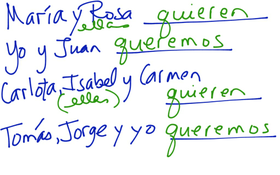 María y Rosa quieren
ellas
Yo y Juan queremos
Carlota, Isabel y Carmen
(ellas) quieren
Tomás, Jorge y yo queremos